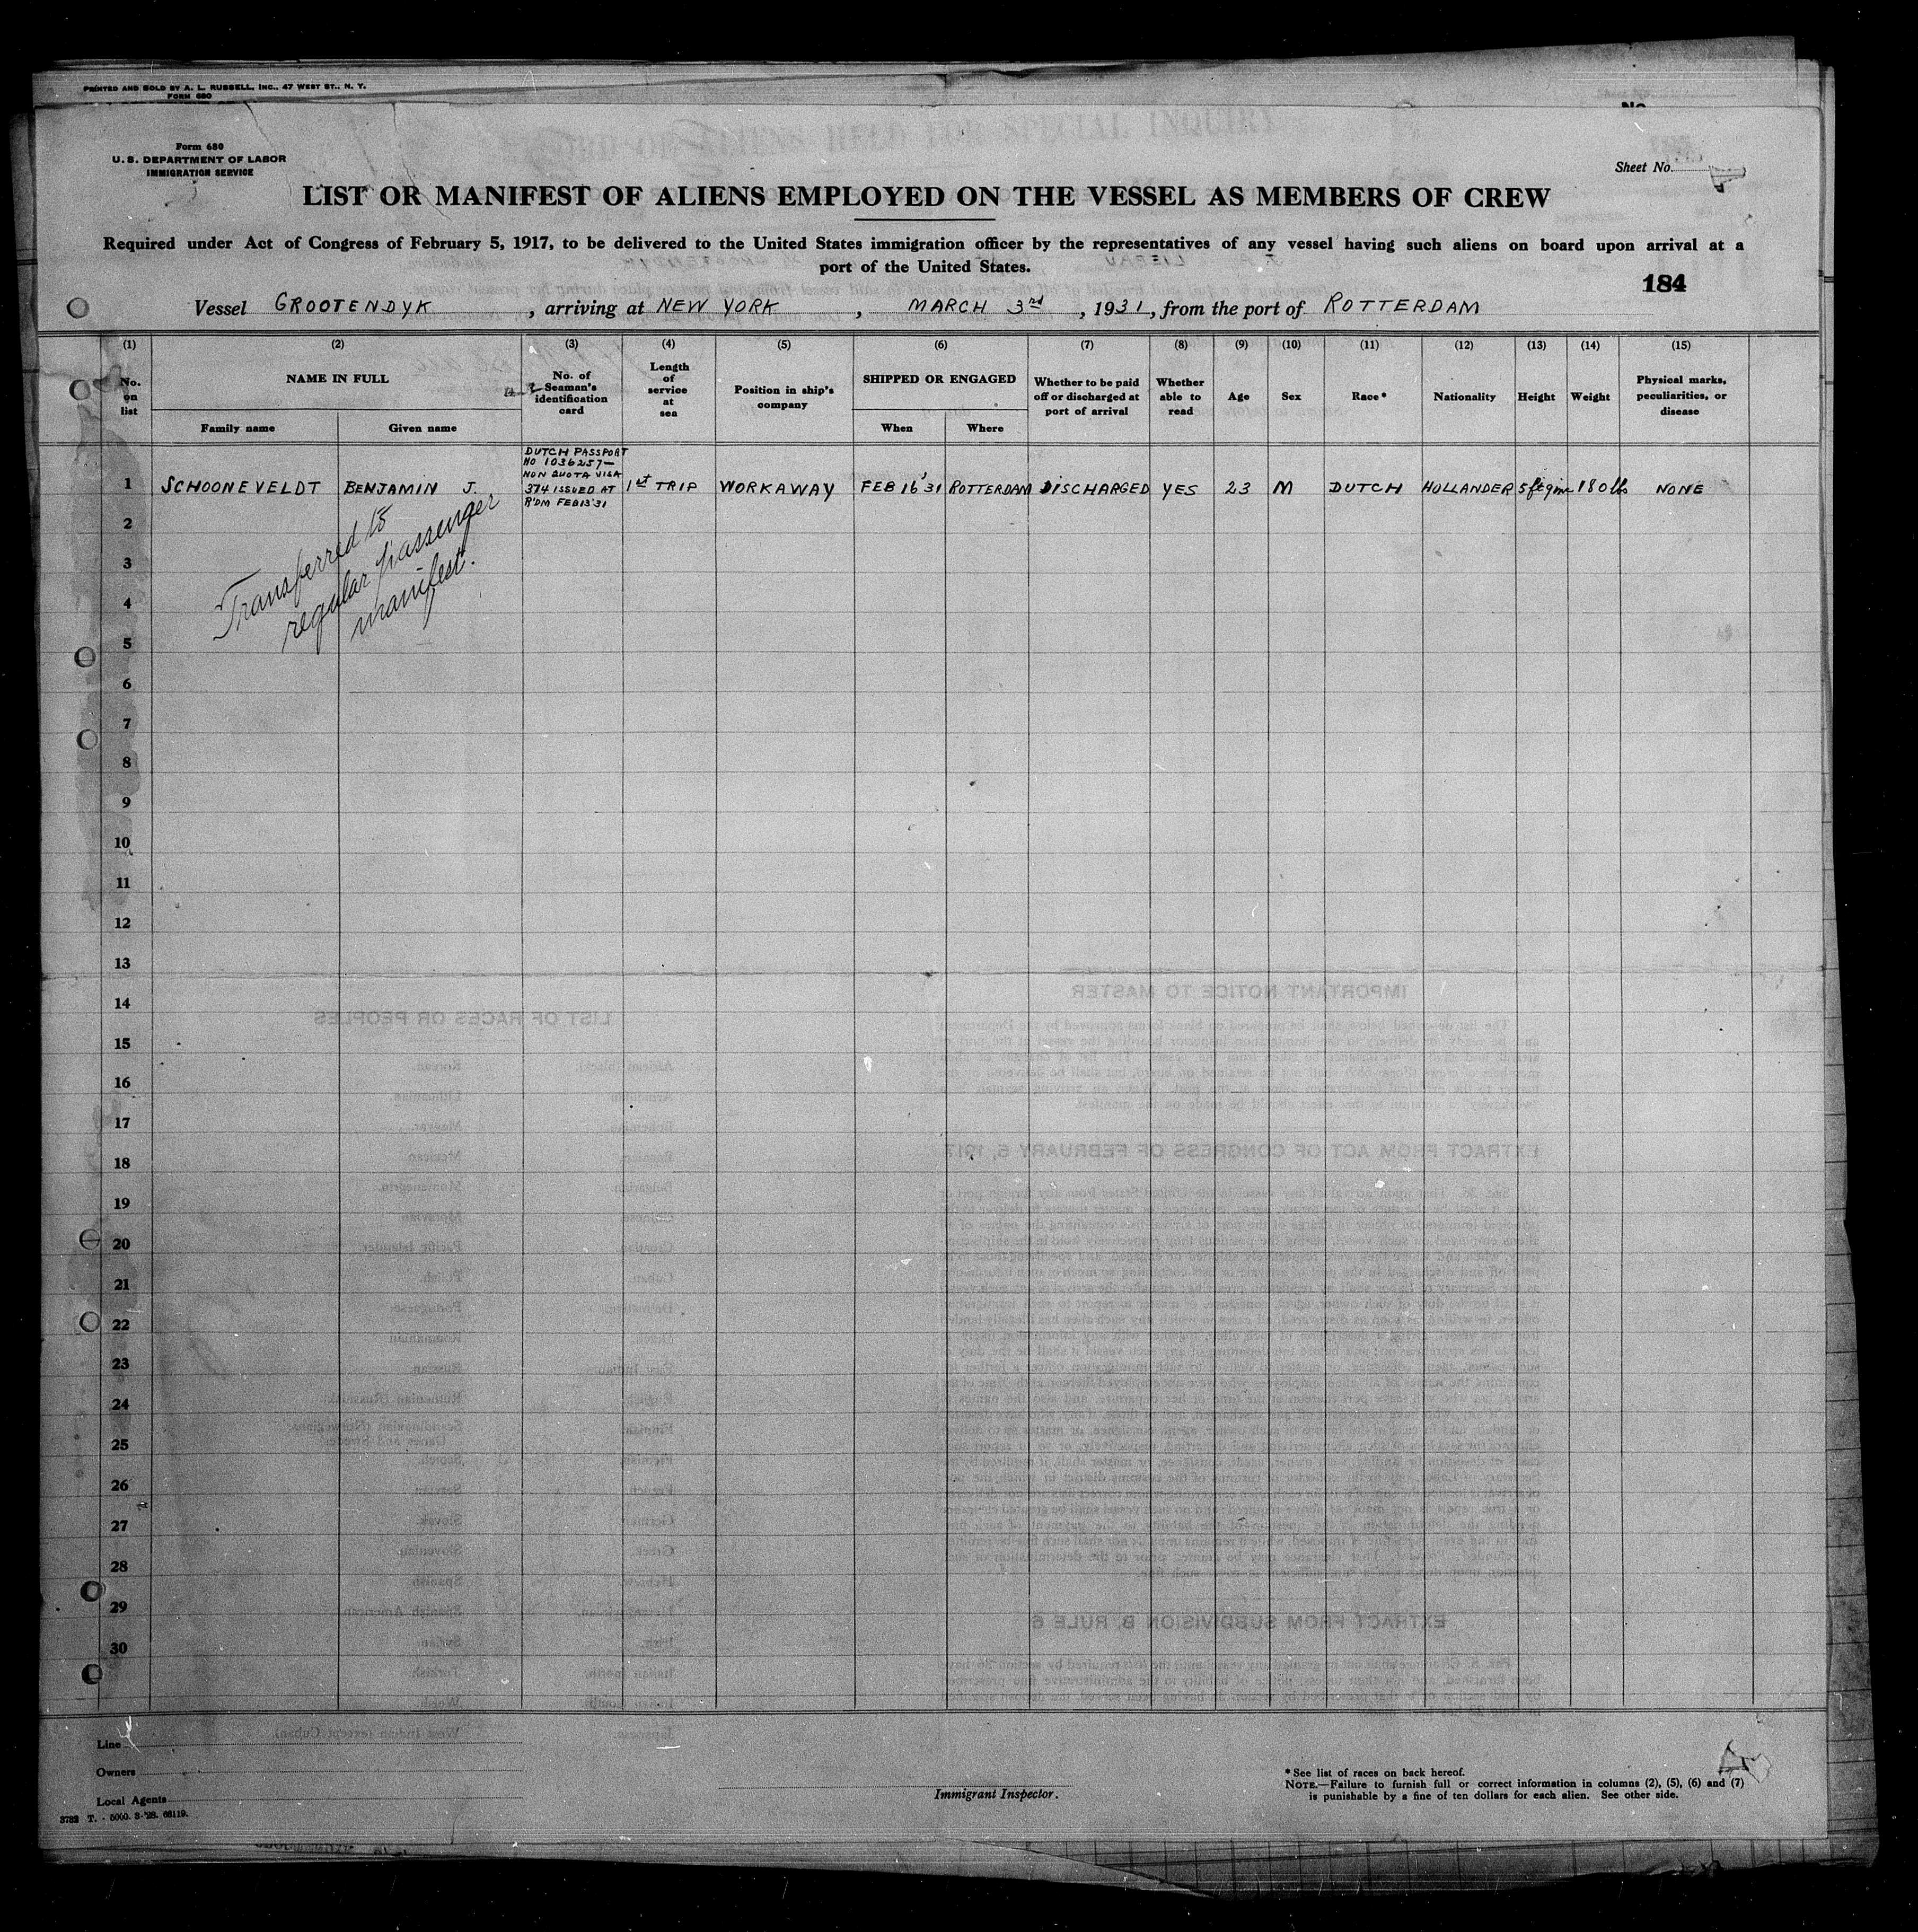 PRINTED AND SOLD BY A. L. RUSSELL, INC., 47 WEST ST., N. Y.
FORM 680
No
Form 680
U. S. DEPARTMENT OF LABOR
IMMIGRATION SERVICE
Sheet No.
LIST OR MANIFEST OF ALIENS EMPLOYED ON THE VESSEL AS MEMBERS OF CREW
Required under Act of Congress of February 5, 1917, to be delivered to the United States immigration officer by the representatives of any vessel having such aliens on board upon arrival at a
port of the United States.
184
Vessel GROOTENDYK, arriving at NEW YORK, MARCH 3rd, 1931, from the port of ROTTERDAM
(1) (2) (3) (4) (5) (6) (7) (8) (9) (10) (11) (12) (13) (14) (15)
No. on list
NAME IN FULL
Family name
Given name
No. of Seaman's identification card
Length of service at sea
Position in ship's company
SHIPPED OR ENGAGED
When
Where
Whether to be paid off or discharged at port of arrival
Whether able to read
Age
Sex
Race*
Nationality
Height
Weight
Physical marks, peculiarities, or disease
DUTCH PASSPORT
NO 1036257—
NON QUOTA VISA
374 ISSUED AT
R'DM FEB 13 '31
1 SCHOONEVELDT BENJAMIN J. 1st TRIP WORKAWAY FEB 16 '31 ROTTERDAM DISCHARGED YES 23 M DUTCH HOLLANDER 5ft 9in 180 lbs NONE
Transferred to
regular passenger
manifest.
2
3
4
5
6
7
8
9
10
11
12
13
14
15
16
17
18
19
20
21
22
23
24
25
26
27
28
29
30
Line
Owners
Local Agents
3782 T. - 5000. 3-'28. 66119.
Immigrant Inspector.
*See list of races on back hereof.
NOTE.—Failure to furnish full or correct information in columns (2), (5), (6) and (7)
is punishable by a fine of ten dollars for each alien. See other side.